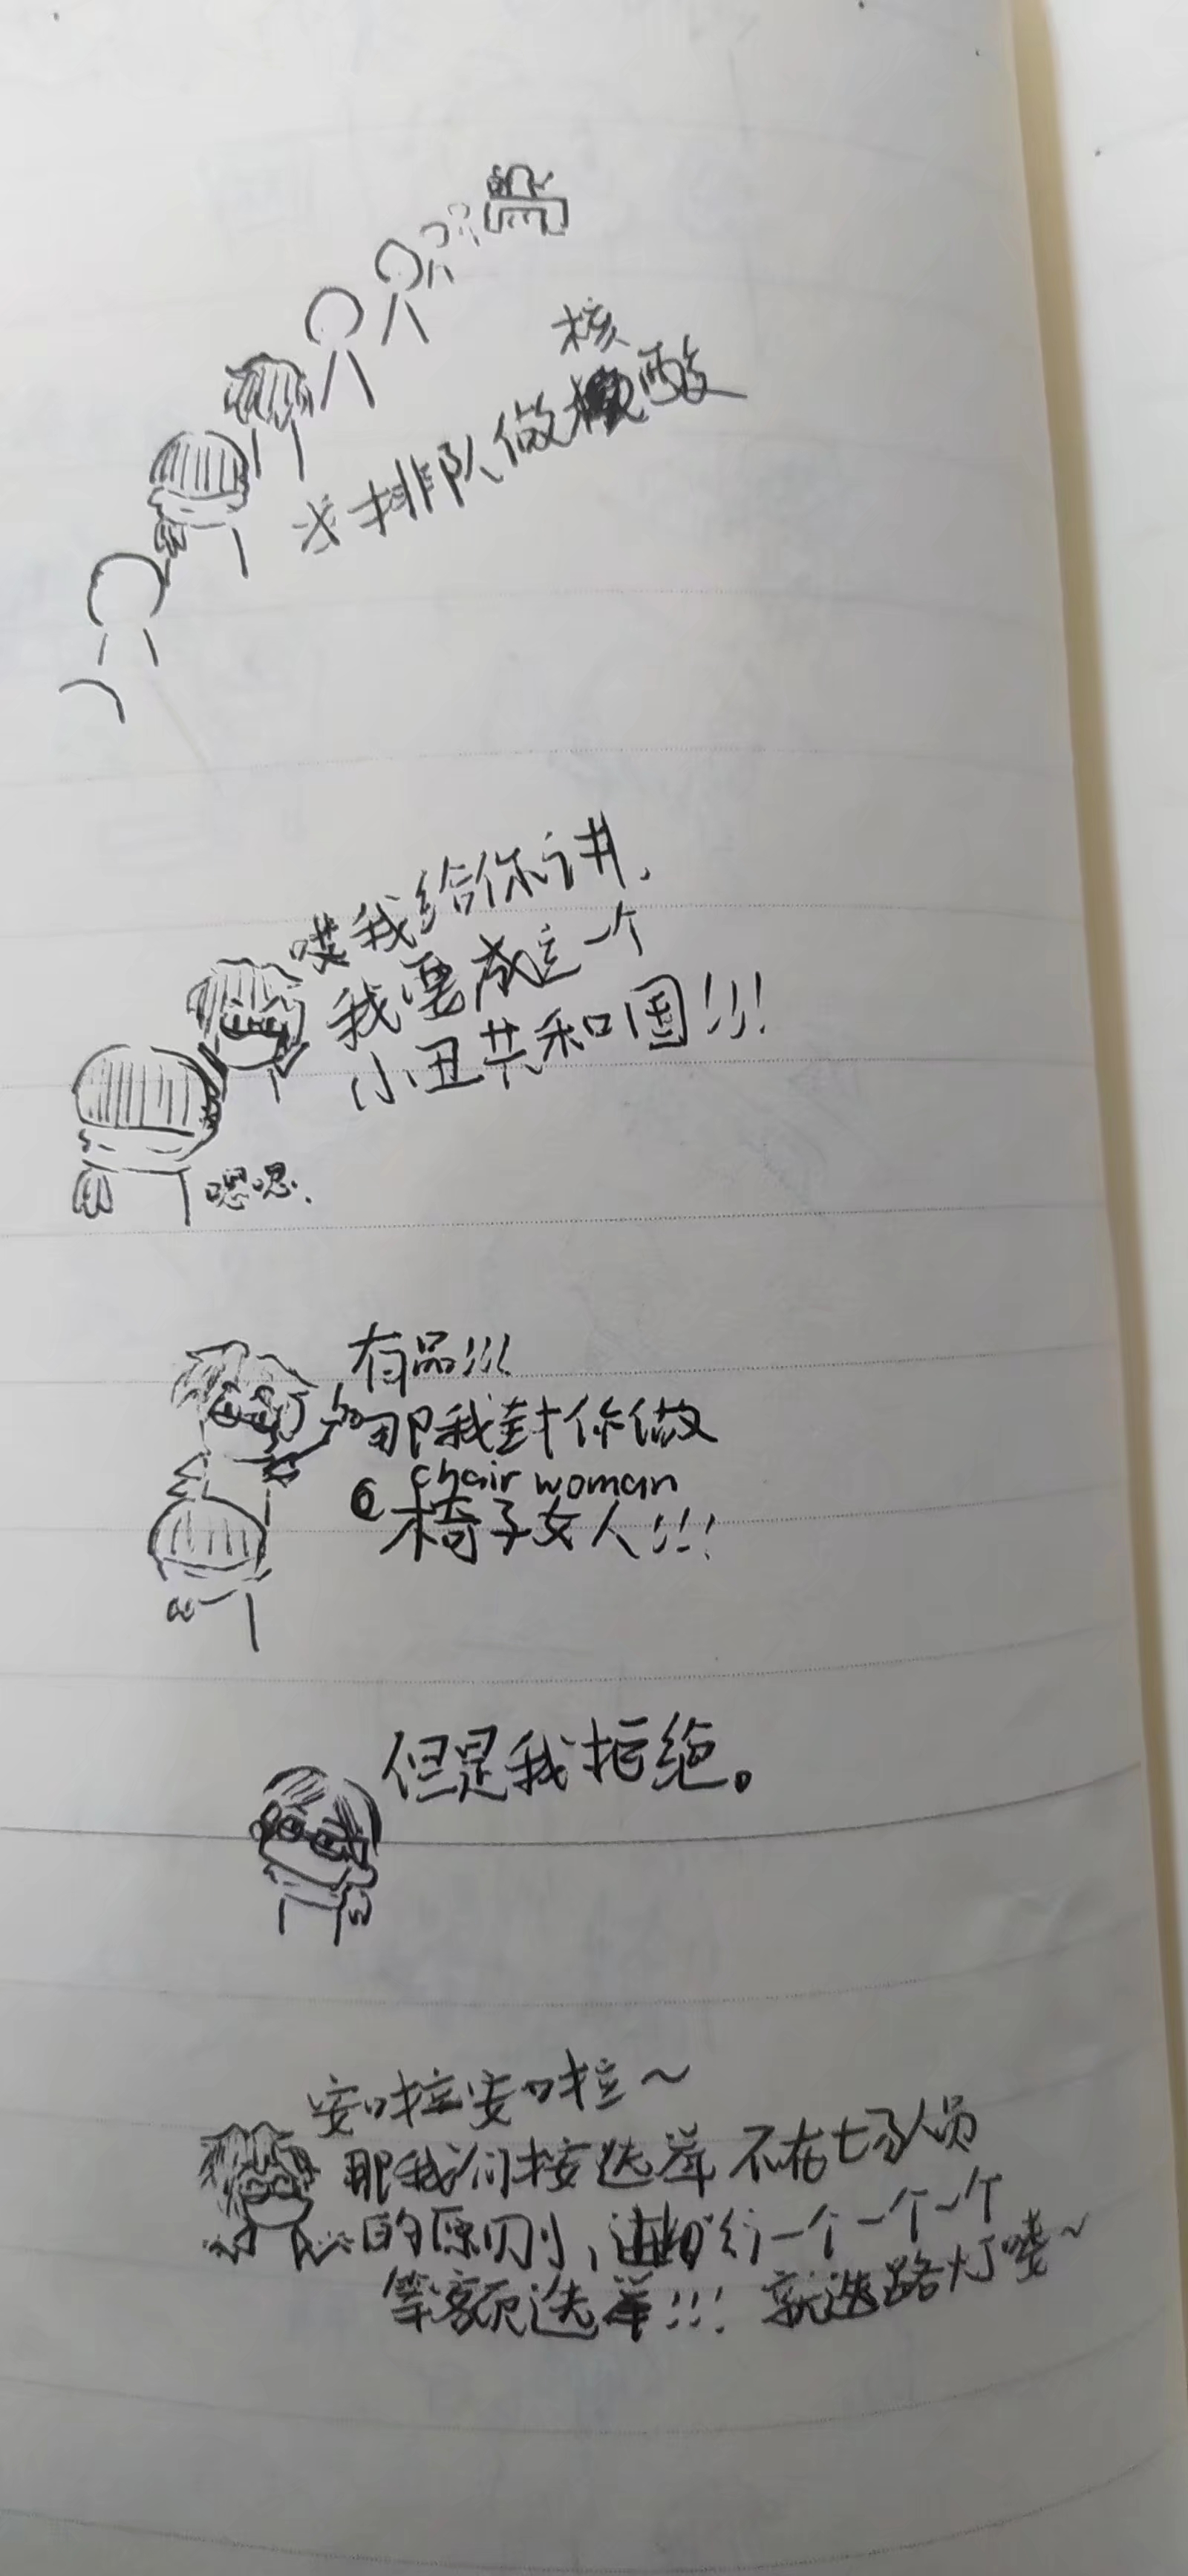 核
*排队做酸
哎我给你讲,
我要成立一个
小丑共和国!!!
嗯嗯.
有品!!!
那我封你做
chair woman
椅子女人!!!
但是我拒绝。
安啦安啦~
那我们按选举不在场人员
的原则,进行一个一个一个
等额选举!!! 就选路灯喽~